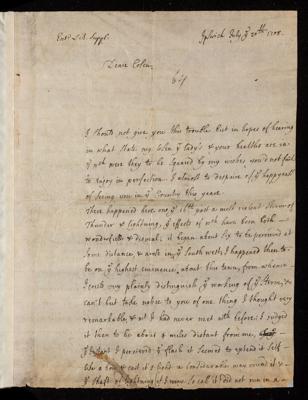 Ipswich July ye 20th 1708.
Deare Colen
Sr
I should not give you this trouble but in hopes of hearing
in what state my Colen ye Lady's & your healths are in
wch were they to be squared by my wishes you'd not fail
to enjoy in perfection. I almost to despaire of ye happyness
of seeing you in ye Country this yeare.
There happened here on ye 16th past a most violent storm of
Thunder & lightning, ye effects of wch have been both
wonderfull & dismal; it began about six to be perceived at
some distance, & arose in ye South west; I happened then to
be on ye highest eminence, about this Town, from whence
I could very plainly distinguish ye working of ye Storm, &
can't but take notice to you of one thing I thought very
remarkable & wt I had never met with before: I judged
it then to be about 2 miles distant from me,
ye Instant I perceived ye flash it seemed to extend it self
like a bow & cast its head a considerable way round it &
ye shaft of lightning if I may so call it did not run in a